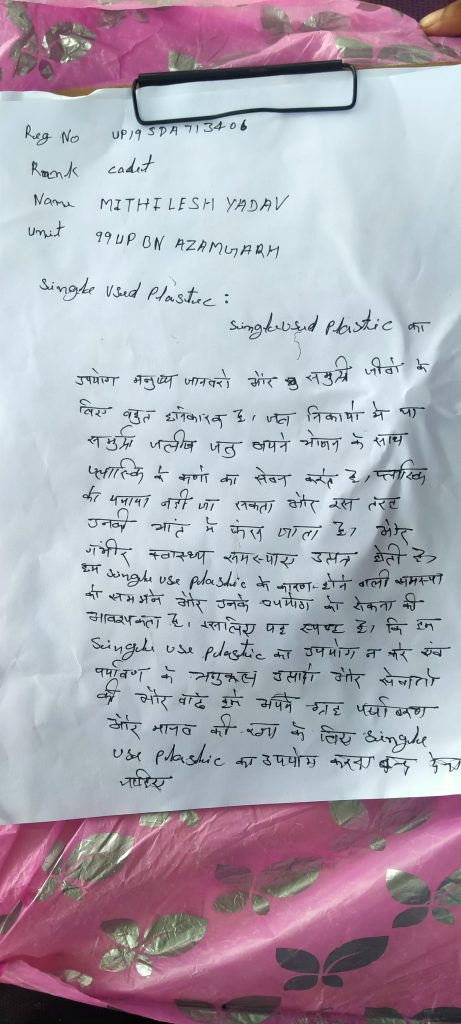 Reg No UP19SDA713406
Rank cadet
Name MITHILESH YADAV
Unit 99 UP BN AZAMGARH
Single Used Plastic :
Single used Plastic का
उपयोग मनुष्य जानवरो और समुद्री जीवों के
लिए बहुत हानिकारक है, जल निकायों मे या
समुद्री जलीय जंतु अपने भोजन के साथ
प्लास्टिक के कणों का सेवन करते है, प्लास्टिक
को पचाया नहीं जा सकता और इस तरह
उनकी आंत मे फंस जाता है, और
गंभीर स्वास्थ्य समस्याए उत्पन्न होती है,
हम Single use plastic के कारण होने वाली समस्या
को समझने और उनके उपयोग को रोकना की
आवश्यकता है, इसलिए यह स्पष्ट है, कि हम
Single use plastic का उपयोग न करे एवं
पर्यावरण के अनुकूल और
की और बढे हमे अपने ग्रह पर्यावरण
और मानव की रक्षा के लिए Single
use plastic का उपयोग करना बन्द देना
चाहिए